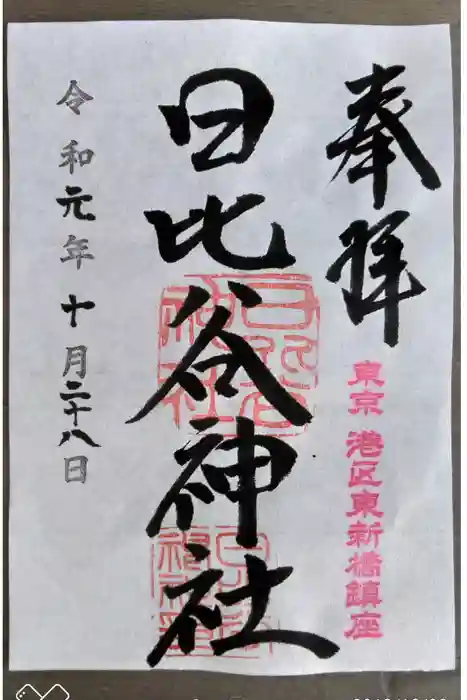 奉拝
東京 港区東新橋鎮座
日比谷神社
日比谷神社
令和元年十月二十八日